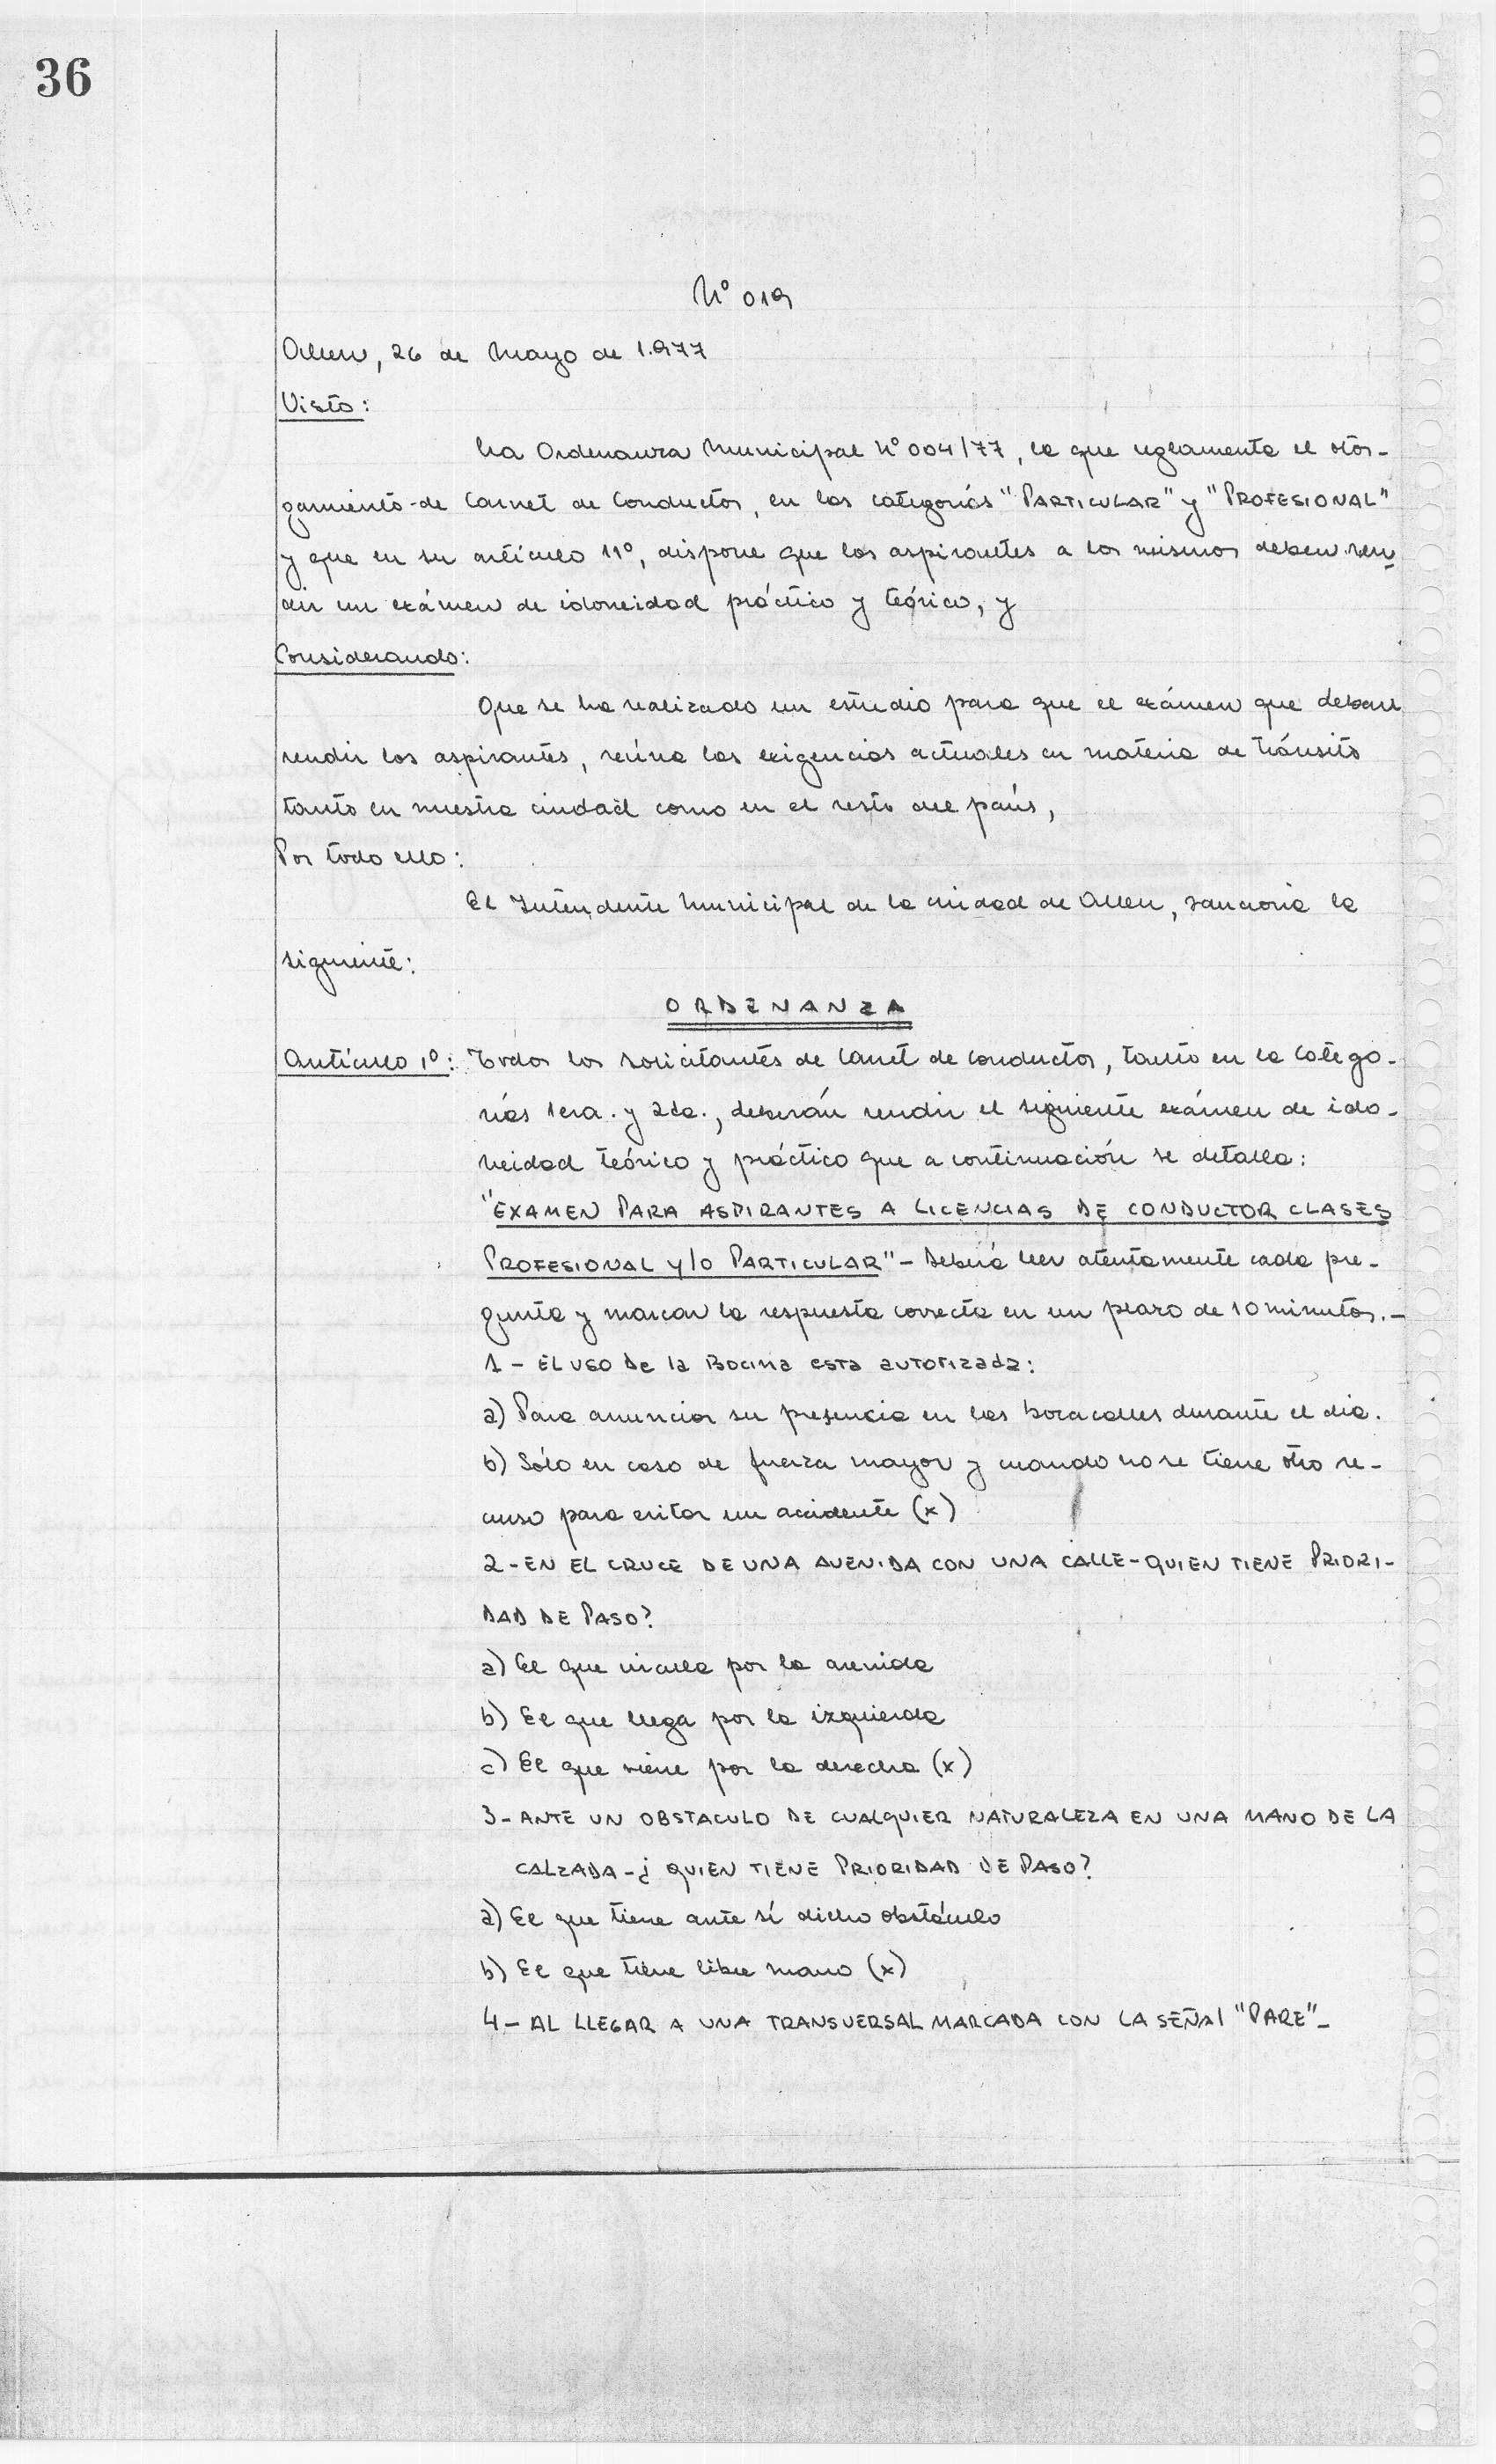 36
Nº 019
Allen, 26 de Mayo de 1.977
Visto:
La Ordenanza Municipal Nº 004/77, la que reglamenta el otor-
gamiento de Carnet de Conductor, en las categorías "PARTICULAR" y "PROFESIONAL"
y que en su artículo 11º, dispone que los aspirantes a los mismos deben ren
dir un exámen de idoneidad práctico y teórico, y
Considerando:
Que se ha realizado un estudio para que el exámen que deban
rendir los aspirantes, reúna las exigencias actuales en materia de tránsito
tanto en nuestra ciudad como en el resto del país,
Por todo ello:
El Intendente Municipal de la ciudad de Allen, sanciona la
siguiente:
ORDENANZA
Artículo 1º: Todos los solicitantes de Carnet de conductor, tanto en la Catego-
rías 1era. y 2da., deberán rendir el siguiente exámen de ido-
neidad teórico y práctico que a continuación se detalla:
"EXAMEN PARA ASPIRANTES A LICENCIAS DE CONDUCTOR CLASES
PROFESIONAL Y/O PARTICULAR" - Deberá leer atentamente cada pre-
gunta y marcar la respuesta correcta en un plazo de 10 minutos.-
1 - EL USO De la Bocina esta autorizada:
a) Para anunciar su presencia en las bocacalles durante el dia.
b) Sólo en caso de fuerza mayor y cuando no se tiene otro re-
curso para evitar un accidente (x)
2 - EN EL CRUCE DE UNA AVENIDA CON UNA CALLE - QUIEN TIENE PRIORI-
DAD DE PASO?
a) El que circula por la avenida
b) El que llega por la izquierda
c) El que viene por la derecha (x)
3 - ANTE UN OBSTACULO DE CUALQUIER NATURALEZA EN UNA MANO DE LA
CALZADA - ¿ QUIEN TIENE PRIORIDAD DE PASO?
a) El que tiene ante sí dicho obstáculo
b) El que tiene libre mano (x)
4 - AL LLEGAR A UNA TRANSVERSAL MARCADA CON LA SEÑAL "PARE" -